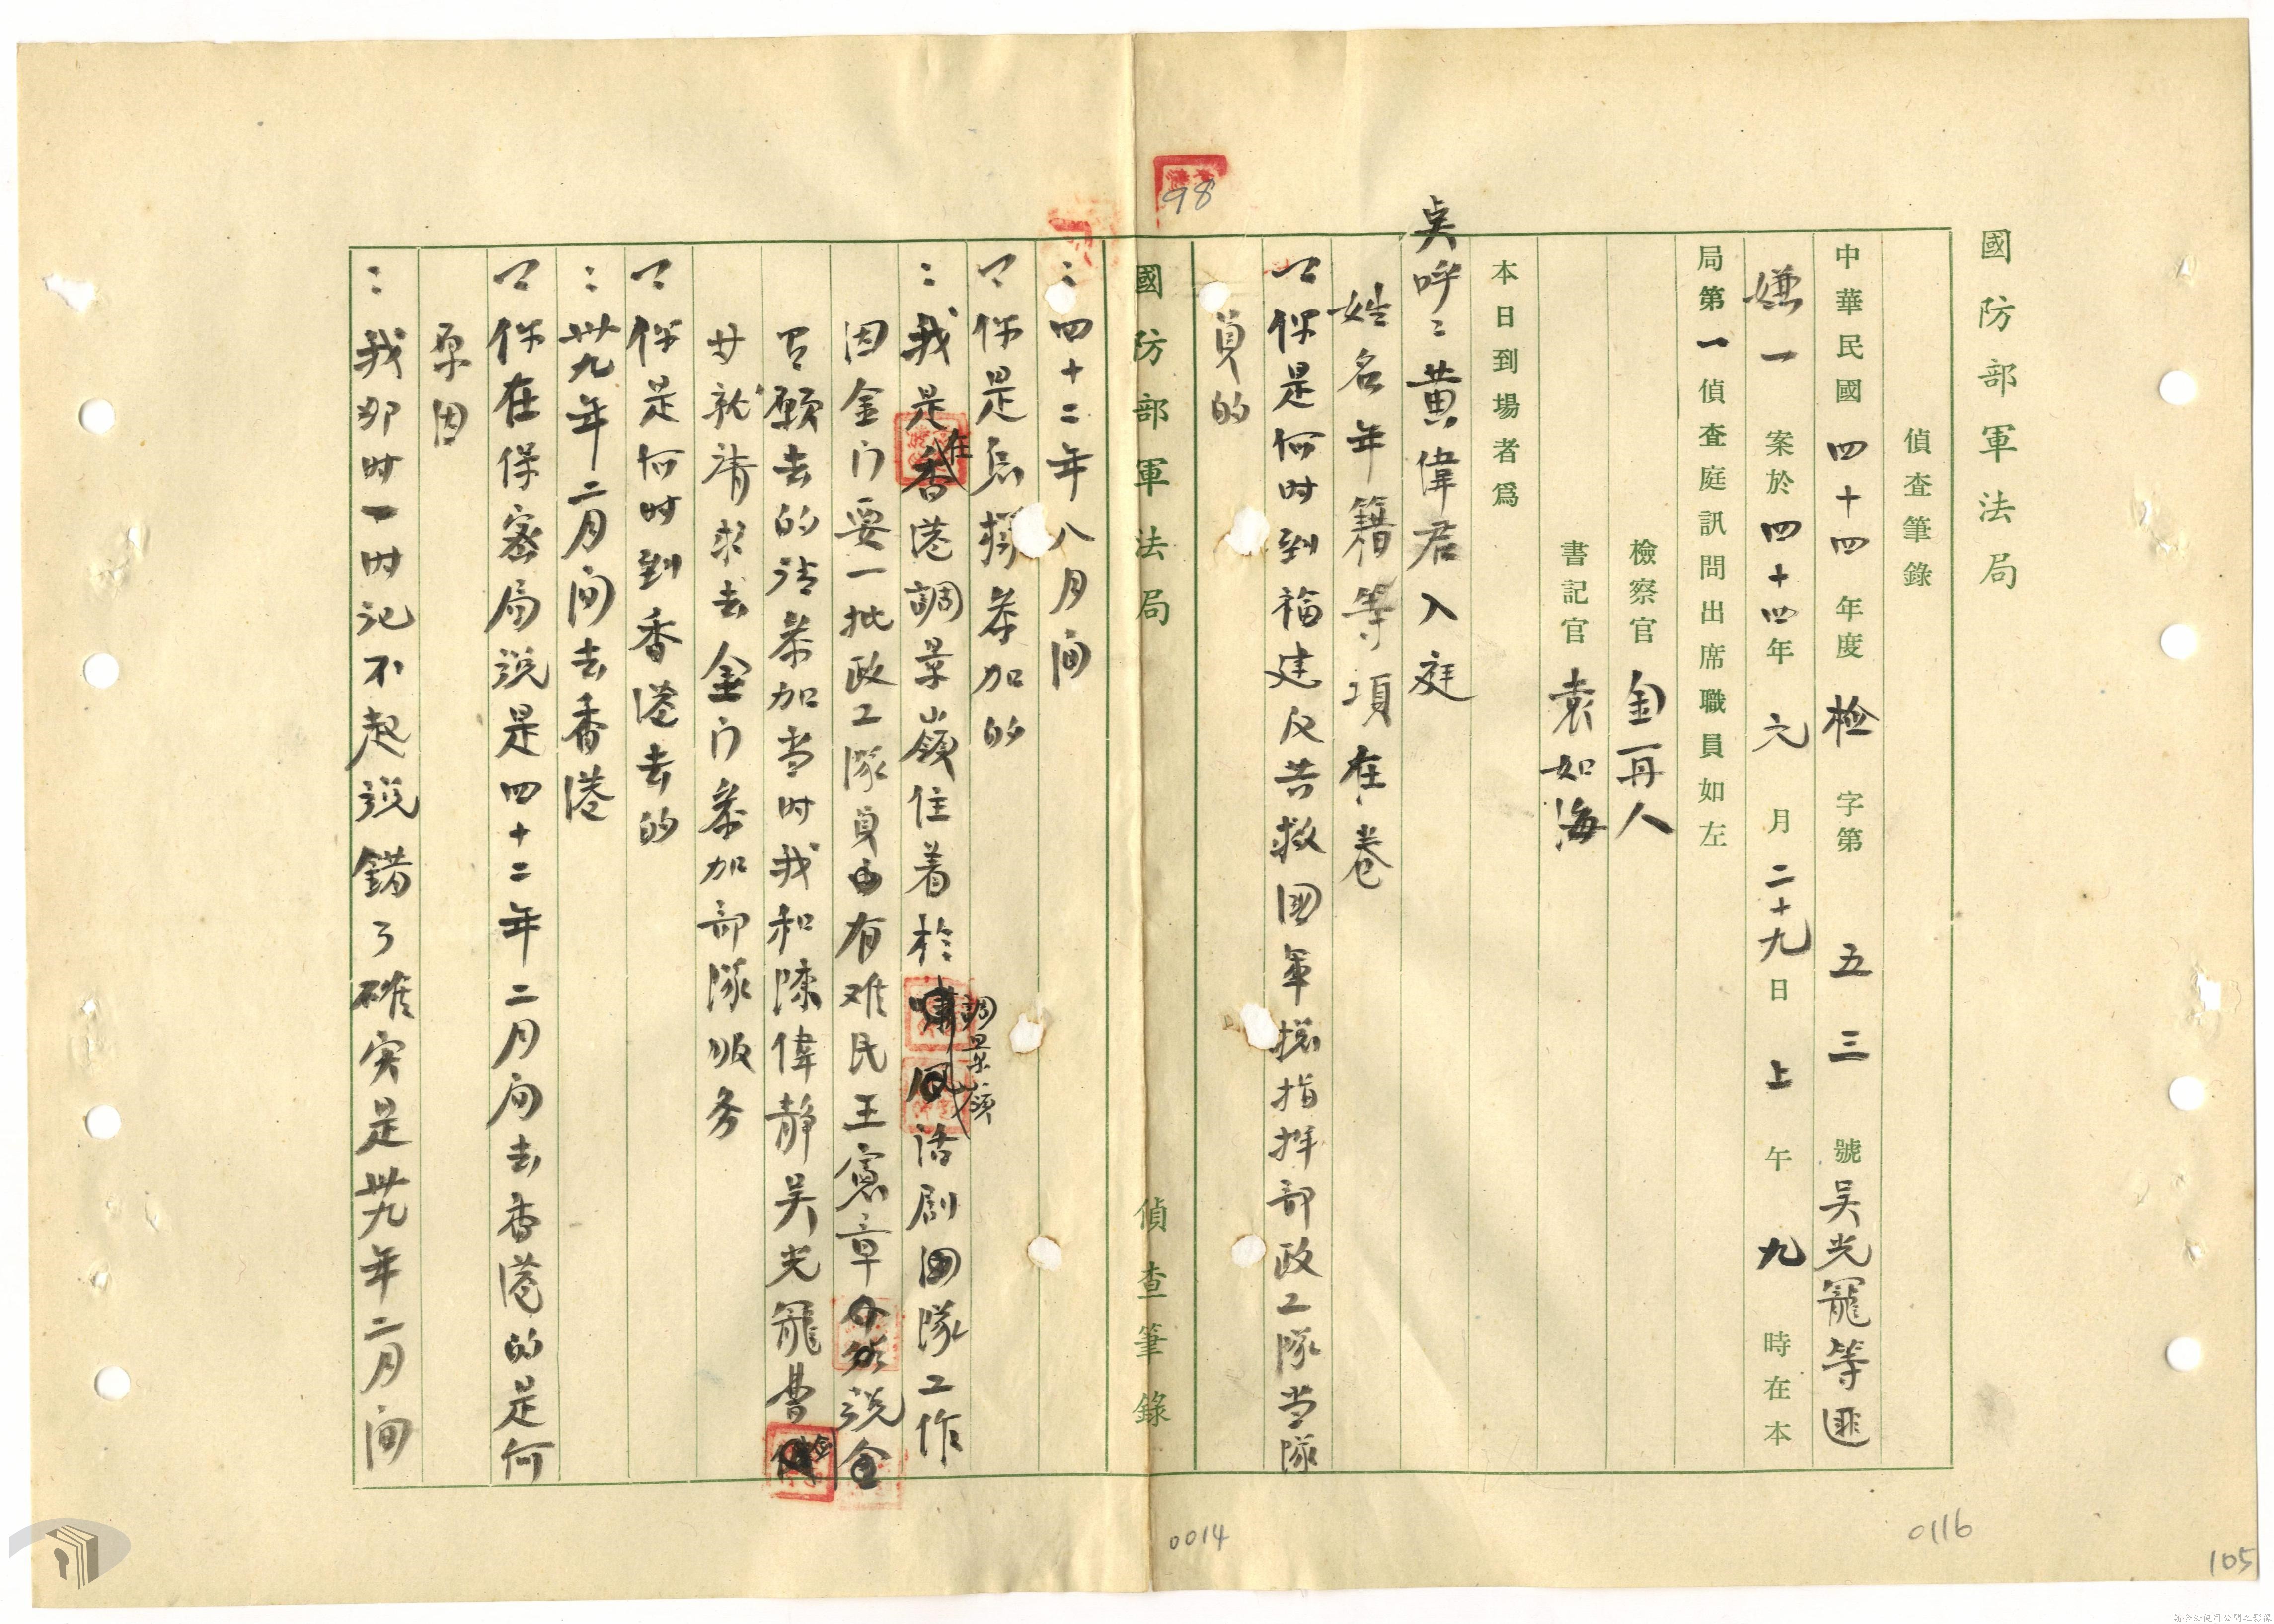 國防部軍法局
偵查筆錄
中華民國四十四年度檢字第五三號吳光寵等匪
嫌一案於四十四年元月二十九日上午九時在本
局第一偵查庭訊問出席職員如左
檢察官 金再人
書記官 袁如海
本日到場者為
吳呼:黃偉君入庭
姓名年籍等項在卷
你是何时到福建反共救国軍总指挥部政工隊当隊
員的
98
國防部軍法局 偵查筆錄
:四十二年八月间
你是怎樣参加的
:我是在香港調景嶺住着於調景嶺话劇团隊工作
因金门要一批政工隊員由有难民王憲章 说金
願去的请参加当时我和陳偉静吴光寵曹
廿就请求去金门参加部隊服务
你是何时到香港去的
:卅九年二月间去香港
你在保密局说是四十二年二月间去香港的是何
原因
:我那时一时记不起说错了確实是卅九年二月间
0014
0116
105
請合法使用公開之影像